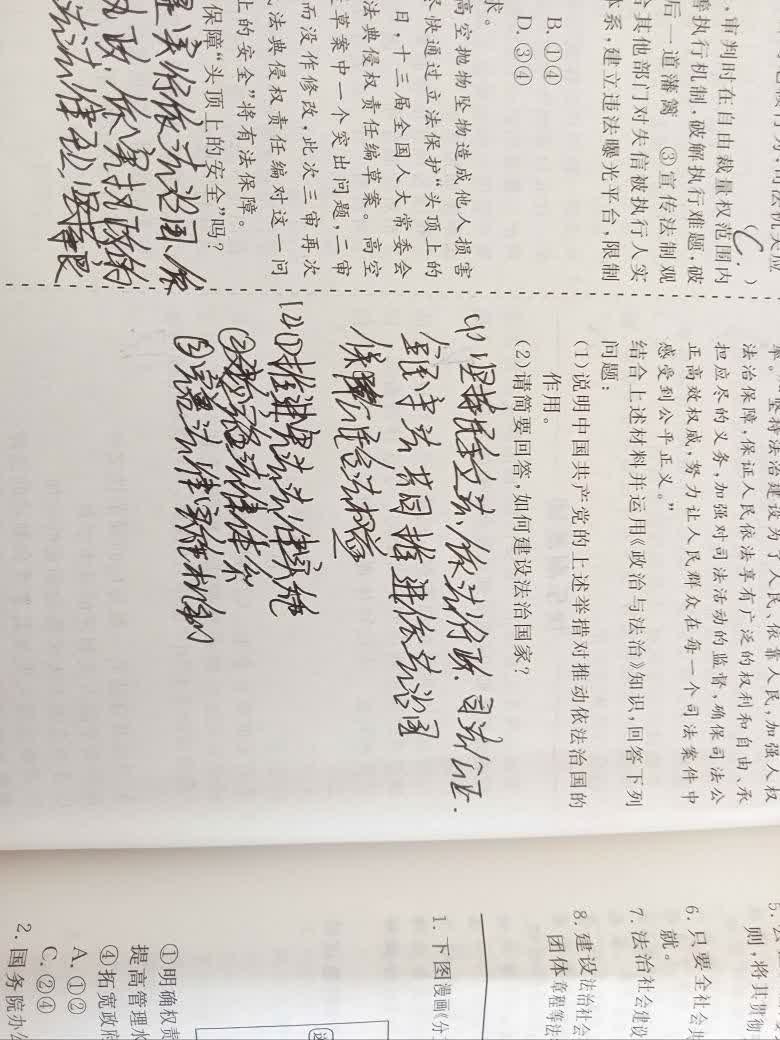 ,审判时在自由裁量权范围内
等执行机制,破解执行难题,破
后一道藩篱 ③宣传法制观
合其他部门对失信被执行人实
体系,建立违法曝光平台,限制
C
B.①④
D.③④
求。
高空抛物坠物造成他人损害
尽快通过立法保护“头顶上的
日,十三届全国人大常委会
法典侵权责任编草案。高空
草案中一个突出问题,二审
而没作修改,此次三审再次
法典侵权责任编对这一问
上的安全”将有法保障。
保障“头顶上的安全”吗?
率。坚持法治建设为了人民、依靠人民,加强人权
法治保障,保证人民依法享有广泛的权利和自由、承
担应尽的义务,加强对司法活动的监督,确保司法公
正高效权威,努力让人民群众在每一个司法案件中
感受到公平正义。”
结合上述材料并运用《政治与法治》知识,回答下列
问题:
(1)说明中国共产党的上述举措对推动依法治国的
作用。
(2)请简要回答,如何建设法治国家?
立法、依法行政、司法公正.
全民守法 共同推进依法治国
保障 合法权益
(2)①推进 法律实施
②建立 法律体系
③完善法律 机制
则,将其贯彻
6. 只要全社会共
就。
7. 法治社会建设
8. 建设法治社会
团体章程等法
1. 下图漫画《分
①明确权责
提高管理水
④拓宽政府
A.①②
C.②④
2. 国务院办公